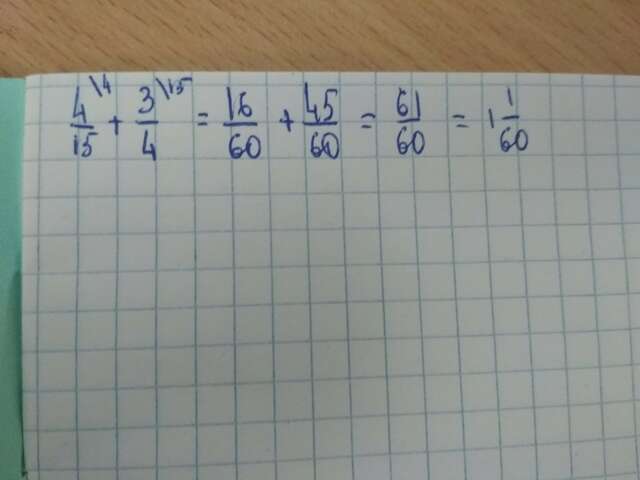 4\4/15 + 3\15/4 = 16/60 + 45/60 = 61/60 = 1 1/60